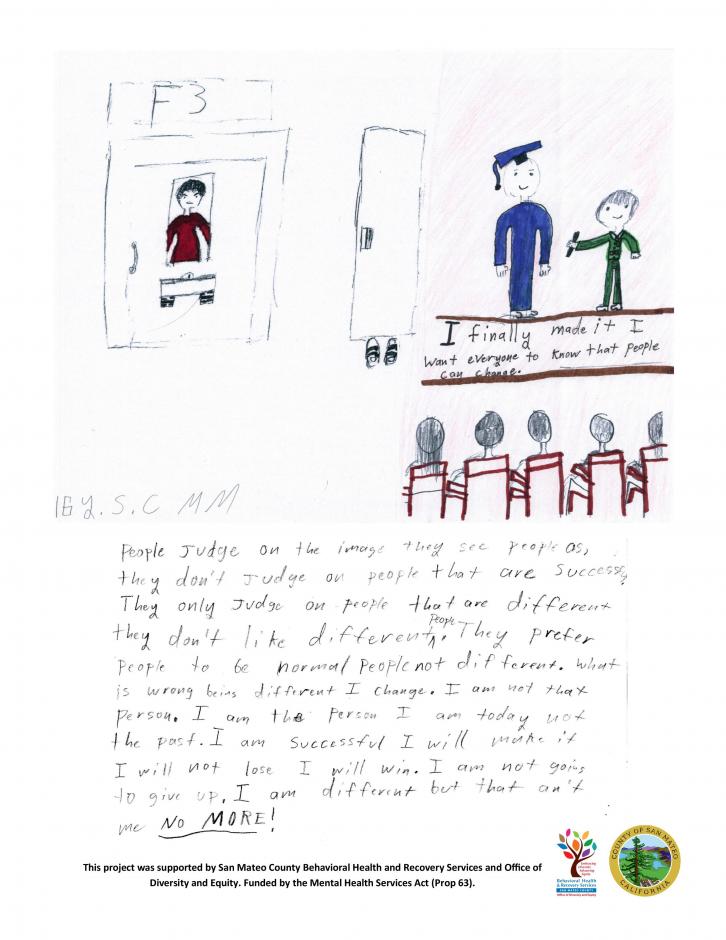 F3
I finally made it I
Want everyone to know that people
can change.
16 Y. S. C MM
People Judge on the image they see people as,
they don't Judge on people that are success
They only Judge on people that are different
they don't like different people. They prefer
people to be normal people not different. what
is wrong being different I change. I am not that
person. I am the person I am today not
the past. I am successful I will make it
I will not lose I will win. I am not going
to give up. I am different but that an't
me NO MORE!
This project was supported by San Mateo County Behavioral Health and Recovery Services and Office of
Diversity and Equity. Funded by the Mental Health Services Act (Prop 63).
Behavioral Health
& Recovery Services
SAN MATEO COUNTY
Office of Diversity and Equity
COUNTY OF SAN MATEO
CALIFORNIA